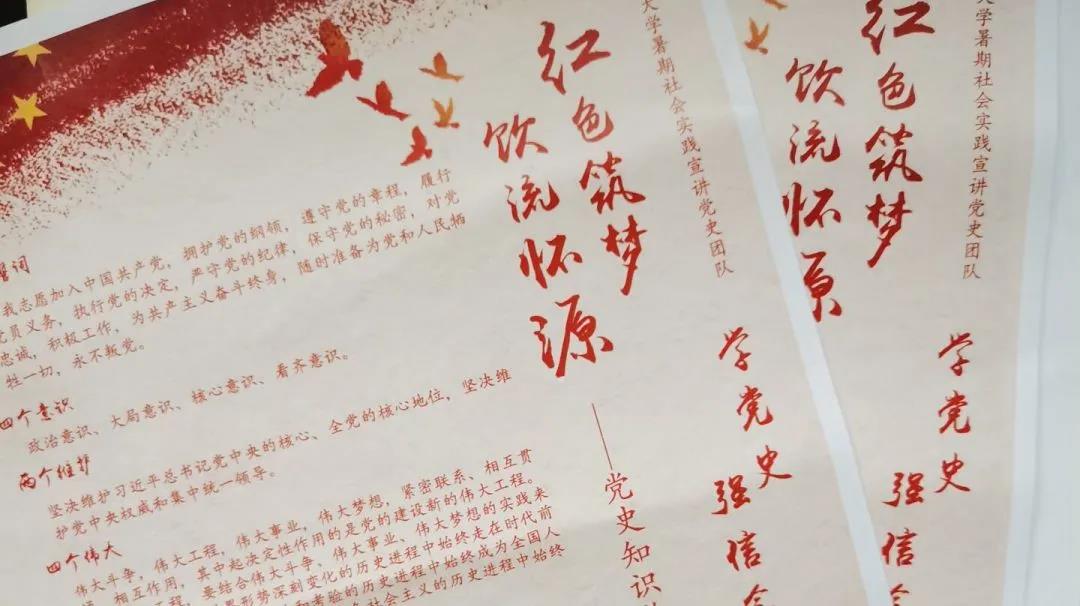 我志愿加入中国共产党，拥护党的纲领，遵守党的章程，履行
党员义务，执行党的决定，严守党的纪律，保守党的秘密，对党
忠诚，积极工作，为共产主义奋斗终身，随时准备为党和人民牺
牲一切，永不叛党。
四个意识
政治意识、大局意识、核心意识、看齐意识。
两个维护
坚决维护习近平总书记党中央的核心、全党的核心地位，坚决维
护党中央权威和集中统一领导。
四个伟大
伟大斗争，伟大工程，伟大事业，伟大梦想，紧密联系、相互贯
相互作用，其中起决定性作用的是党的建设新的伟大工程。
要结合伟大斗争、伟大事业、伟大梦想的实践来
形势深刻变化的历史进程中始终走在时代前
考验的历史进程中始终成为全国人
社会主义的历史进程中始终
红色筑梦
饮流怀源
——党史知识
大学暑期社会实践宣讲党史团队
学党史
强信
红色筑梦
饮流怀原
大学暑期社会实践宣讲党史团队
学党史
强信